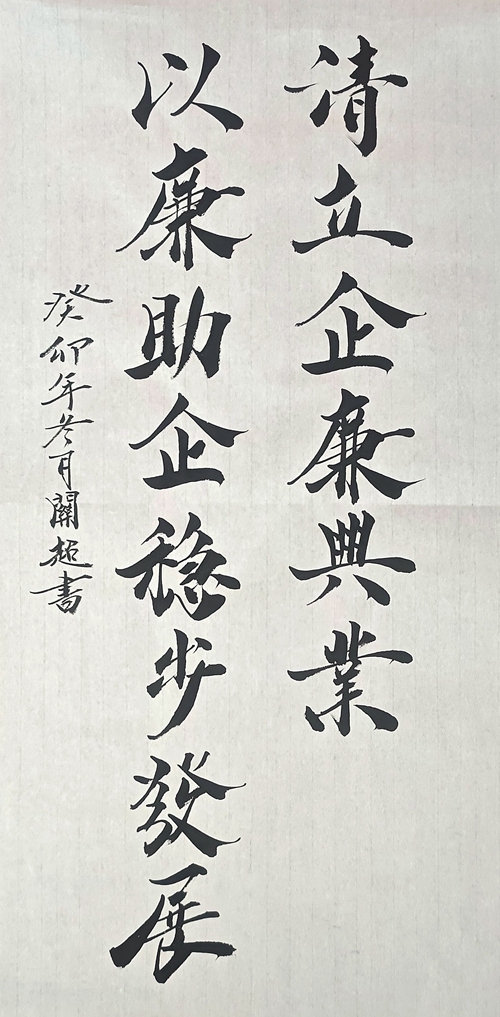 清立企廉興業
以廉助企穏步發展
癸卯年冬月關超書